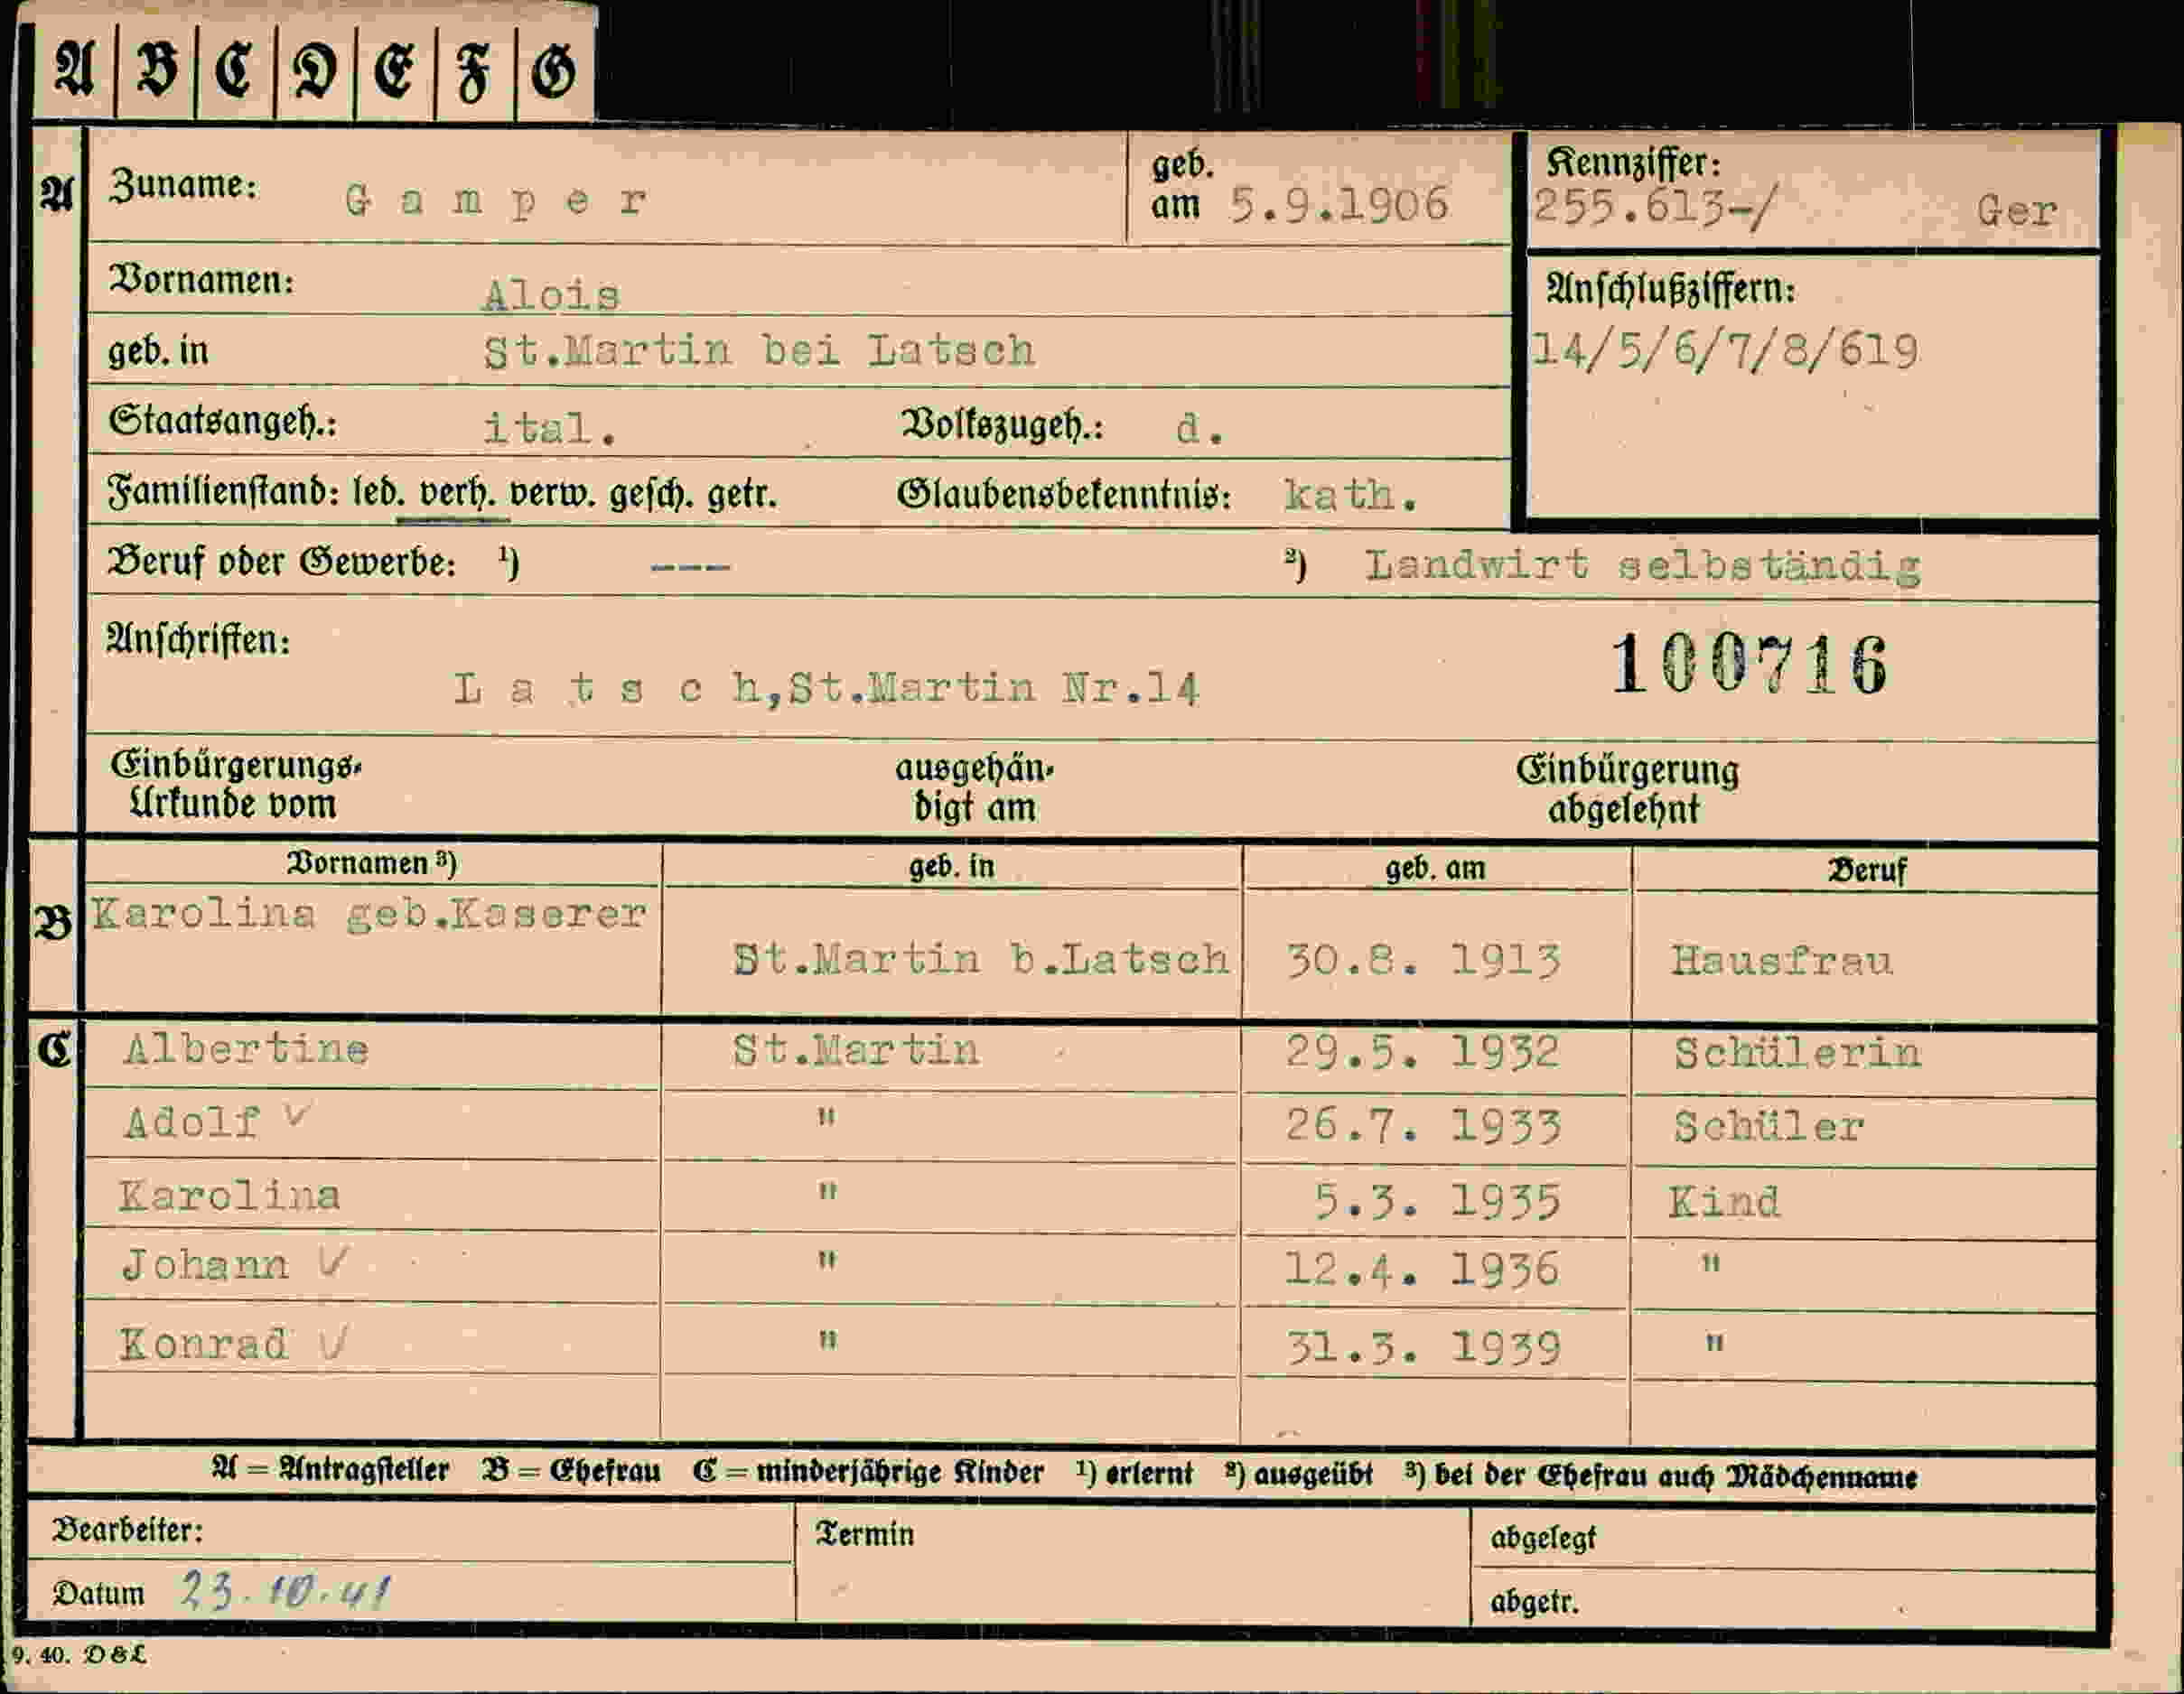 A B C D E F G
A Zuname: Gamper geb. am 5.9.1906 Kennziffer: 255.613-/ Ger
Vornamen: Alois Anschlußziffern:
geb. in St.Martin bei Latsch 14/5/6/7/8/619
Staatsangeh.: ital. Volkszugeh.: d.
Familienstand: led. verh. verw. gesch. getr. Glaubensbekenntnis: kath.
Beruf oder Gewerbe: ¹) --- ²) Landwirt selbständig
Anschriften: 100716
Latsch,St.Martin Nr.14
Einbürgerungs- ausgehän- Einbürgerung
Urkunde vom digt am abgelehnt
Vornamen ³) geb. in geb. am Beruf
B Karolina geb.Kaserer
St.Martin b.Latsch 30.8. 1913 Hausfrau
C Albertine St.Martin 29.5. 1932 Schülerin
Adolf " 26.7. 1933 Schüler
Karolina " 5.3. 1935 Kind
Johann " 12.4. 1936 "
Konrad " 31.3. 1939 "
A = Antragsteller B = Ehefrau C = minderjährige Kinder ¹) erlernt ²) ausgeübt ³) bei der Ehefrau auch Mädchenname
Bearbeiter: Termin abgelegt
Datum 23.10.41 abgetr.
9. 40. D&L